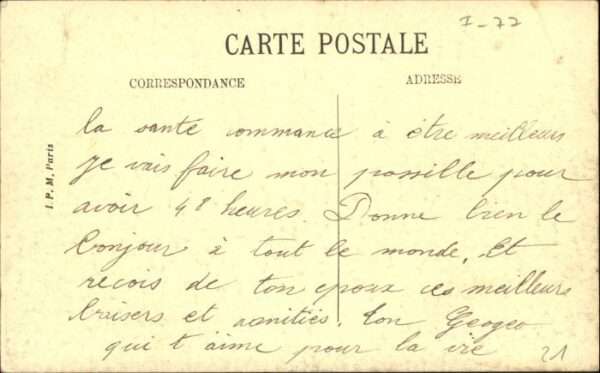 7-77
CARTE POSTALE
CORRESPONDANCE
ADRESSE
I. P. M. Paris
la santé commance à être meilleurs
je vais faire mon possille pour
avoir 48 heures. Donne bien le
bonjour à tout le monde. Et
recois de ton epoux ces meilleurs
baisers et amitiés. ton Georges
qui t'aime pour la vie
21